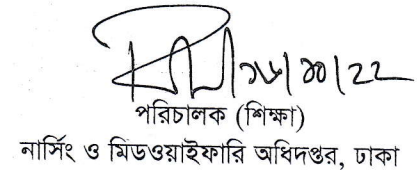 পরিচালক (শিক্ষা)
নার্সিং ও মিডওয়াইফারি অধিদপ্তর, ঢাকা